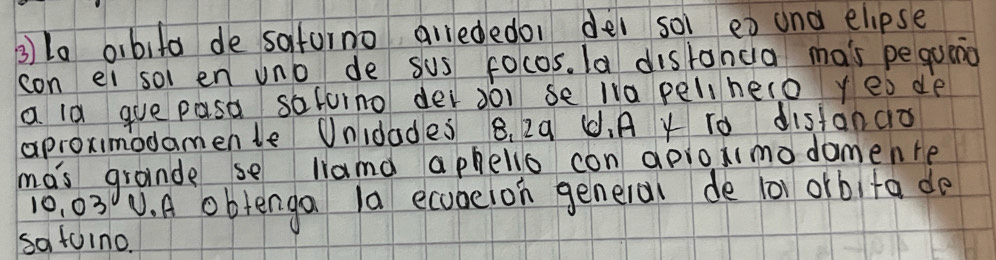 3) la orbita de saturno arrededor del sol es una elipse
con el sol en uno de sus focos. la distancia más pequeña
a la que pasa saturno del sol se lla pelihero y es de
aproximadamente Unidades 8.29 U.A y la distancia
más grande se llama aphelio con aproximadamente
10.03 U.A obtenga la ecuación general de la orbita de
saturno.